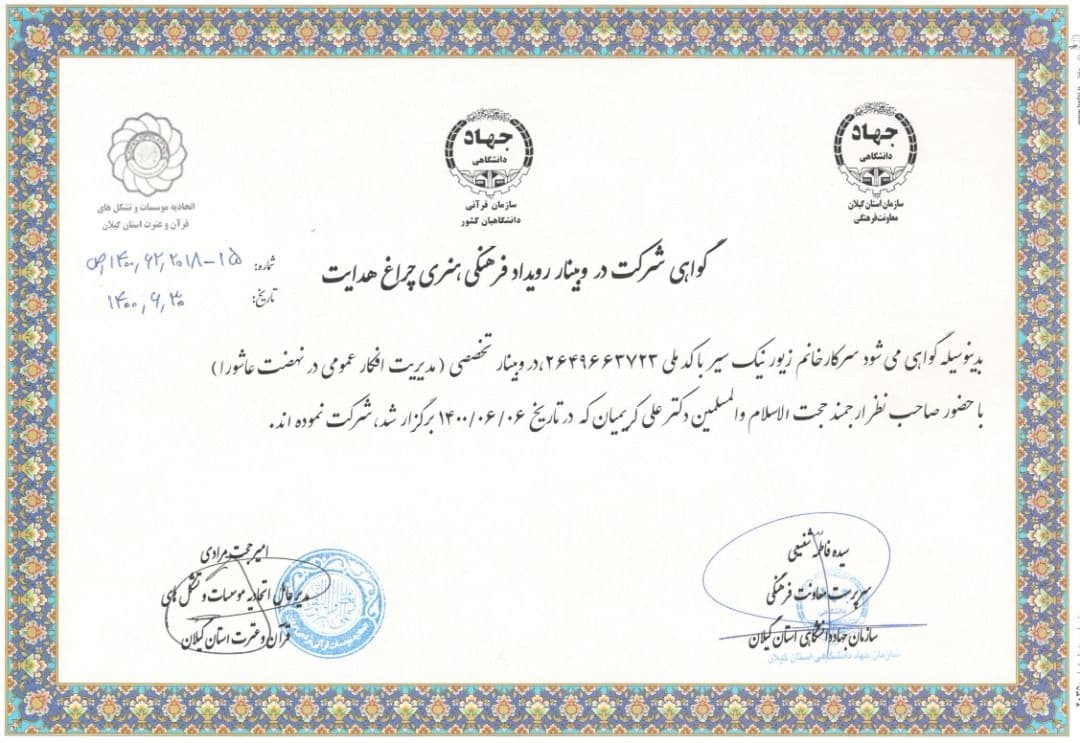 جهاد
دانشگاهی
سازمان استان گیلان
معاونت فرهنگی
جهاد
دانشگاهی
سازمان قرآنی
دانشگاهیان کشور
اتحادیه موسسات و تشکل های
قرآن و عترت استان گیلان
شماره:
تاریخ: ۱۴۰۰,۶,۳۰
گواهی شرکت در وبینار رویداد فرهنگی هنری چراغ هدایت
بدینوسیله گواهی می شود سرکار خانم زیور نیک سیر با کد ملی ۲۶۴۹۶۶۳۷۲۳، در وبینار تخصصی (مدیریت افکار عمومی در نهضت عاشورا)
با حضور صاحب نظر ارجمند حجت الاسلام والمسلمین دکتر علی کریمیان که در تاریخ ۱۴۰۰/۰۶/۰۶ برگزار شد، شرکت نموده اند.
سیده فاطمه شفیعی
سرپرست معاونت فرهنگی
سازمان جهاد دانشگاهی استان گیلان
سازمان جهاد دانشگاهی استان گیلان
امیر حجت مرادی
مدیر عامل اتحادیه موسسات و تشکل های
قرآن و عترت استان گیلان